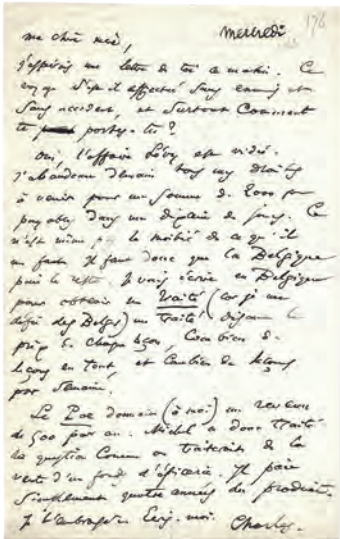 Mercredi
176
ma chère mère,
j'espérais une lettre de toi ce matin. Ce
voyage s'est-il effectué sans ennui et
sans accident, et surtout comment
te portes-tu ?
Oui, l'affaire Lévy est vidée.
J'abandonne demain tous mes droits
à venir pour une somme de 2000 fr
payables dans une dizaine de jours. Ce
n'est même pas la moitié de ce qu'il
me faut. Il faut donc que la Belgique
paie le reste. Je vais écrire en Belgique
pour obtenir un traité (car je me
défie des Belges) un traité disant le
prix de chaque leçon, combien de
leçons en tout, et combien de leçons
par semaine.
Le Poe donnait (à moi) un revenu
de 500 par an. Michel a donc traité
la question comme on traiterait de la
vente d'un fonds d'épicerie. Il paie
simplement quatre années du produit.
Je t'embrasse. Écris-moi. Charles.